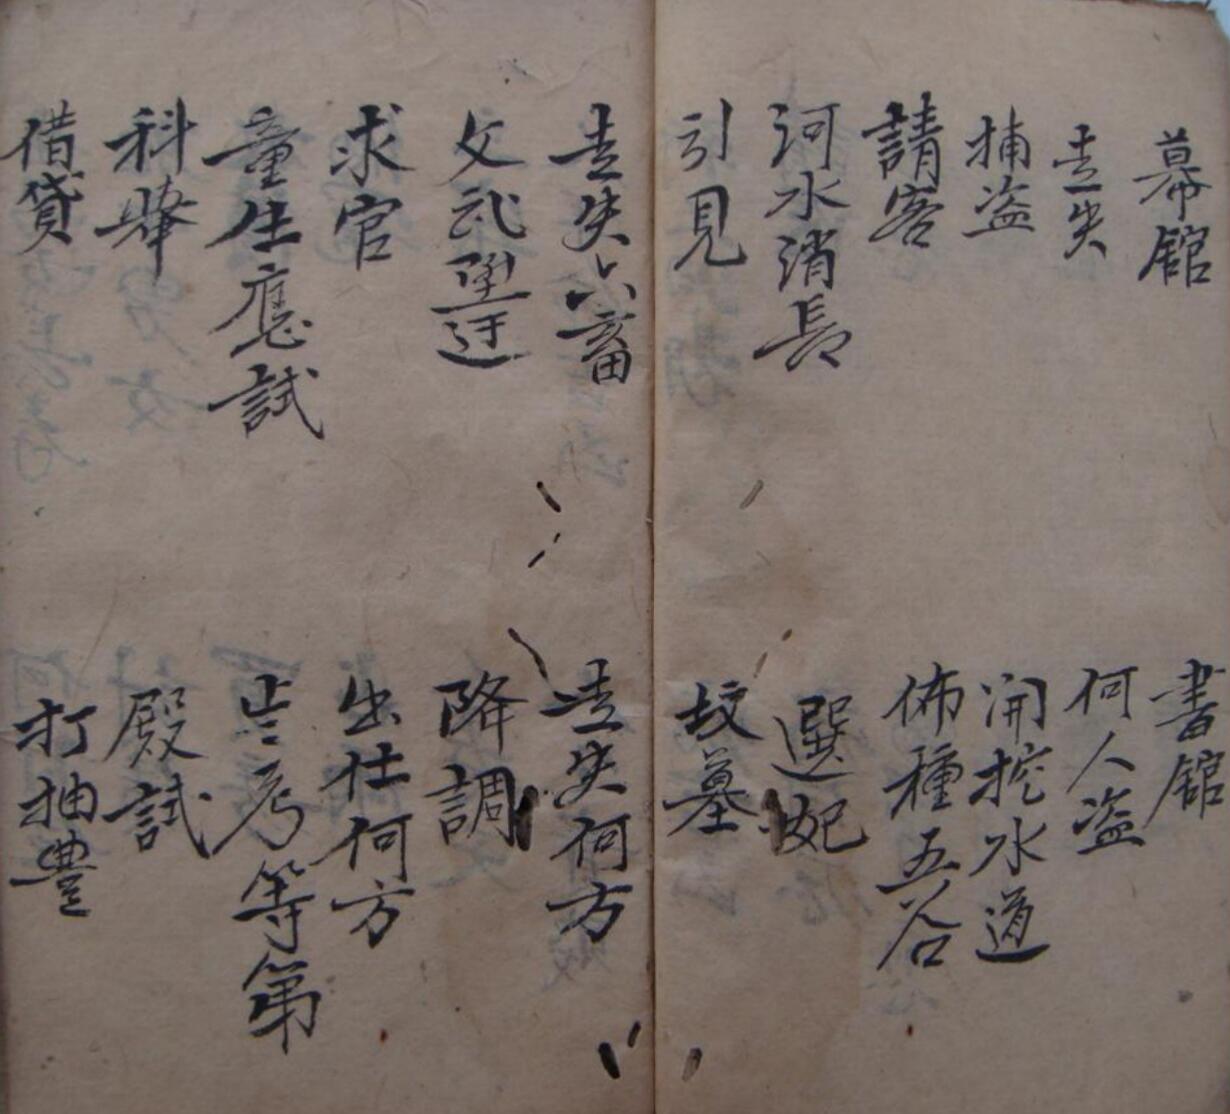 幕館 書館
走失 何人盗
捕盗 開挖水道
請客 佈種五谷
河水消長 選妃
引見 坟墓
走失六畜 走失何方
文武陞迁 降調
求官 出仕何方
童生應試 歲考等第
科舉 殿試
借貸 打抽豐